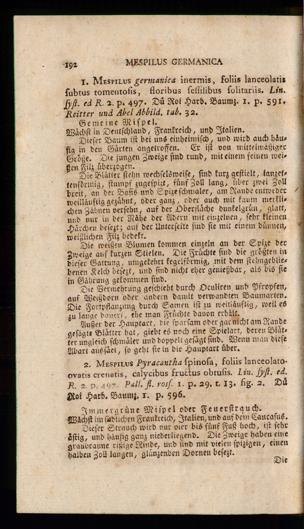 192 MESPILUS GERMANICA
1. MESPILUS germanica inermis, foliis lanceolatis
subtus tomentosis, floribus sessilibus solitariis. Lin.
syst. ed R. 2. p. 497. Dü Roi Harb. Baumz. 1. p. 591.
Reitter und Abel Abbild. tab. 32.
Gemeine Mispel.
Wächst in Deutschland, Frankreich, und Italien.
Dieser Baum ist bei uns einheimisch, und wird auch häu-
fig in den Gärten angetroffen. Er ist von mittelmäßiger
Größe. Die jungen Zweige sind rund, mit einem feinen wei-
ßen Filz überzogen.
Die Blätter stehn wechselsweise, sind kurz gestielt, lanzet-
tenförmig, stumpf zugespitzt, fünf Zoll lang, über zwei Zoll
breit, an der Basis und Spitze schmaler, am Rande entweder
weitläuftig gezähnt, oder ganz, oder auch mit kaum merkli-
chen Zähnen versehn, auf der Oberfläche dunkelgrün, glatt,
und nur in der Nähe der Adern mit einzelnen, sehr kleinen
Härchen besetzt; auf der Unterseite sind sie mit einem dünnen,
weißlichen Filz bedekt.
Die weißen Blumen kommen einzeln an der Spitze der
Zweige auf kurzen Stielen. Die Früchte sind die größten in
dieser Gattung, umgekehrt kegelförmig, mit dem stehngeblie-
benen Kelch besetzt, und sind nicht eher genießbar, als bis sie
in Gährung gekommen sind.
Die Vermehrung geschieht durch Oculiren und Pfropfen,
auf Weißdorn oder andern damit verwandten Baumarten.
Die Fortpflanzung durch Samen ist zu weitläuftig, weil es
zu lange dauert, ehe man Früchte davon erhält.
Außer der Hauptart, die sparsam oder gar nicht am Rande
gesägte Blätter hat, giebt es noch eine Spielart, deren Blät-
ter ungleich schmäler und doppelt gesägt sind. Wenn man diese
Abart aussäet, so geht sie in die Hauptart über.
2. MESPILUS Pyracantha spinosa, foliis lanceolato-
ovatis crenatis, calycibus fructus obtusis. Lin. syst. ed.
R. 2. p. 497. Pall. fl. ross. 1. p. 29. t. 13. fig. 2. Dü
Roi Harb. Baumz. 1. p. 596.
Immergrüne Mispel oder Feuerstrauch.
Wächst im südlichen Frankreich, Italien, und auf dem Caucasus.
Dieser Strauch wird nur vier bis fünf Fuß hoch, ist sehr
ästig, und häufig ganz niederliegend. Die Zweige haben eine
graubraune rissige Rinde, und sind mit vielen spitzigen, einen
halben Zoll langen, glänzenden Dornen besetzt.
Die